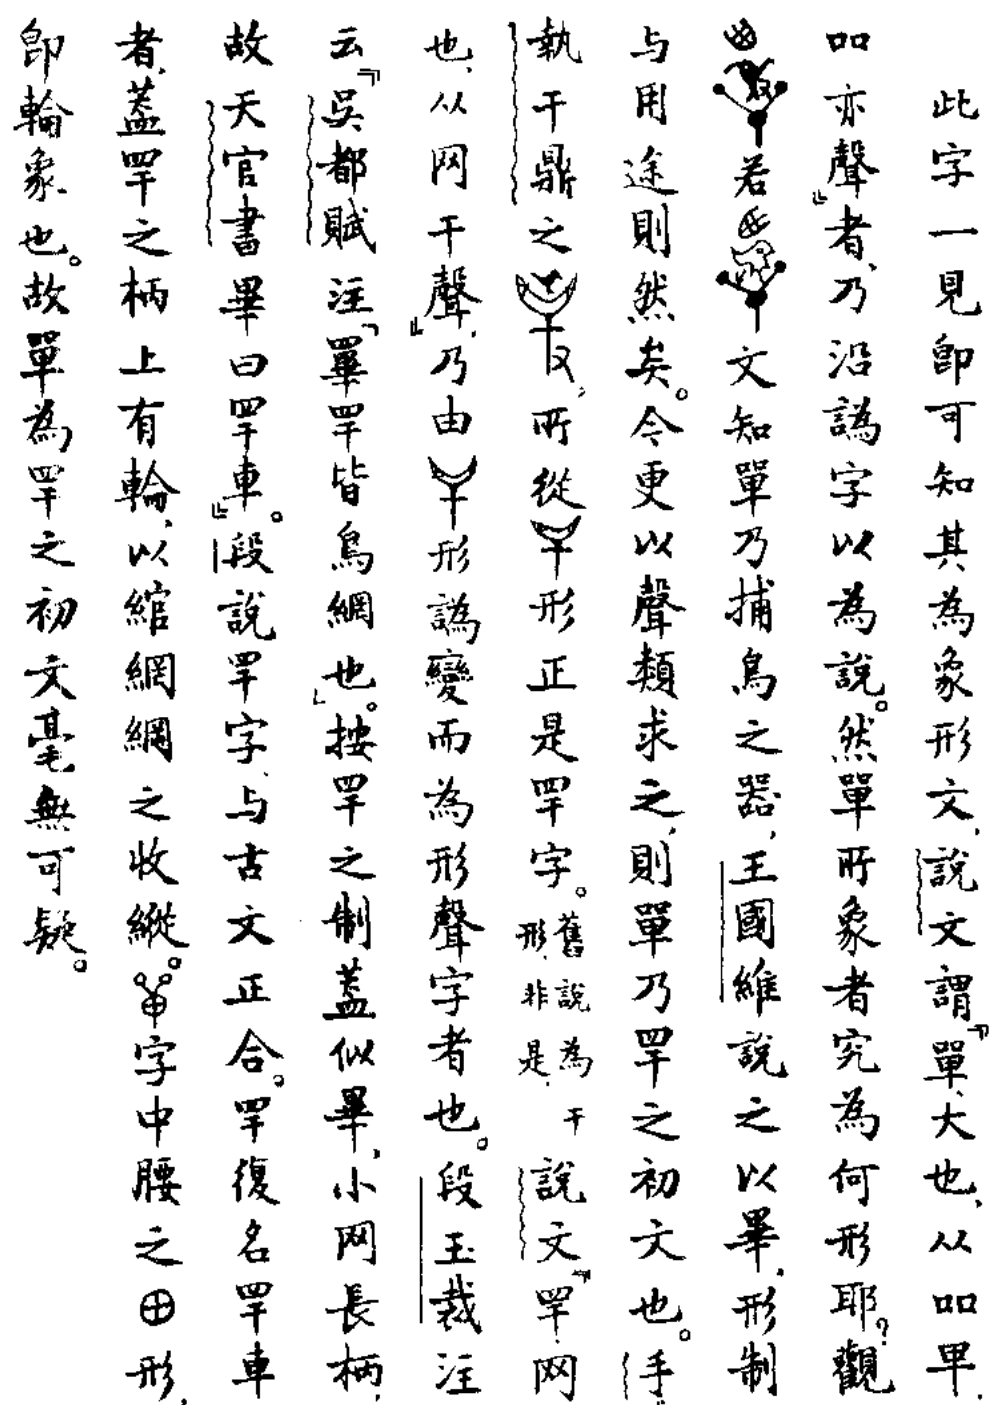 此字一見卽可知其為象形文，說文謂『單、大也，从吅甲，
吅亦聲』者，乃沿譌字以為說。然單所象者究為何形耶？觀
若文知單乃捕鳥之器，王國維說之以畢，形制
与用途則然矣。今更以聲類求之，則單乃罕之初文也。手
執干鼎之，所從形正是罕字。舊說為干形，非是。說文『罕，网
也，从网干聲』，乃由形譌變而為形聲字者也。段玉裁注
云『吳都賦注「罼罕皆鳥網也」。按罕之制蓋似畢，小网長柄，
故天官書畢曰罕車』。段說罕字，与古文正合。罕復名罕車
者，蓋罕之柄上有輪，以綰網綱之收縱。字中腰之形，
卽輪象也。故單為罕之初文毫無可疑。